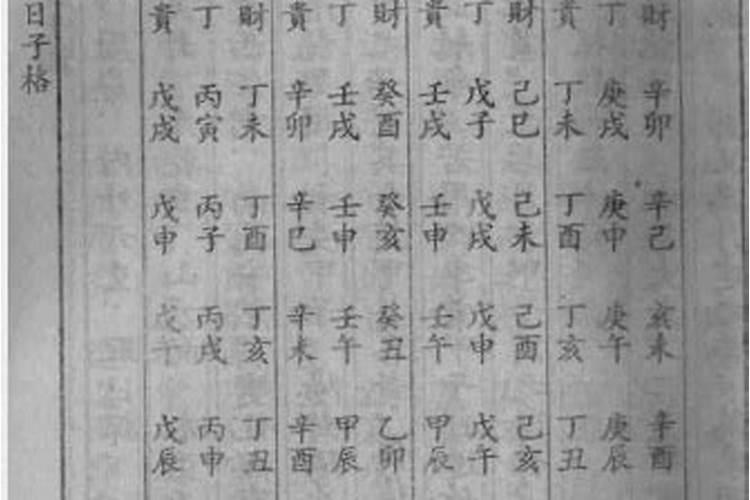 財辛卯辛己亥未辛酉
丁庚戌庚申庚午庚辰
貴丁未丁酉丁亥丁丑
財己巳己未己酉己亥
丁戊子戊戌戊申戊午
貴壬戌壬申壬午甲辰
財癸酉癸亥癸丑乙卯
丁壬戌壬申壬午甲辰
貴辛卯辛巳辛未辛酉
財丁未丁酉丁亥丁丑
丁丙寅丙子丙戌丙申
貴戊戌戊申戊午戊辰
日子格